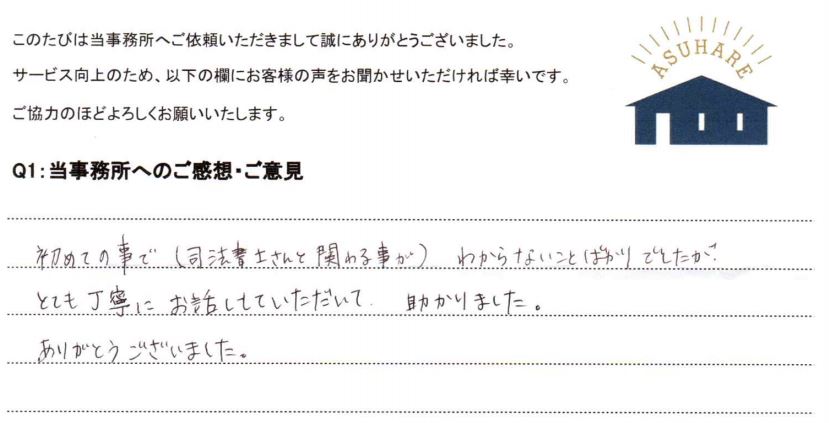 このたびは当事務所へご依頼いただきまして誠にありがとうございました。
サービス向上のため、以下の欄にお客様の声をお聞かせいただければ幸いです。
ご協力のほどよろしくお願いいたします。
ASUHARE
Q1:当事務所へのご感想・ご意見
初めての事で(司法書士さんと関わる事が) わからないことばかりでしたが、
とても丁寧にお話しして いただいて、 助かりました。
ありがとうございました。